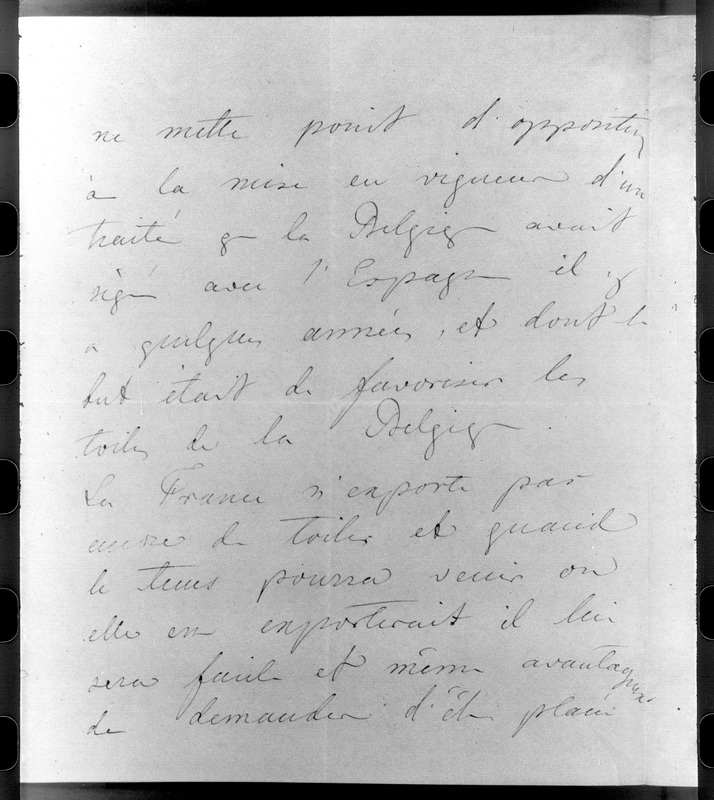 ne mette point d'opposition
à la mise en vigueur d'un
traité q la Belgiq avait
signé avec l'Espagne il y
a quelques années, et dont le
but était de favoriser les
toiles de la Belgiq.
La France n'exporte pas
encore de toiles et quand
le tems pourra venir ou
elle en exporterait il lui
sera facile et même avantageux
de demander d'être placée